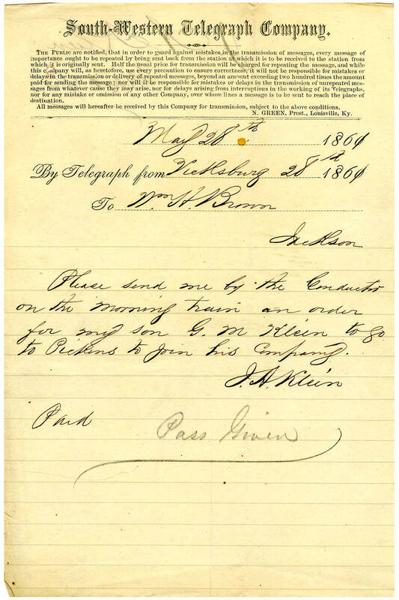 South-Western Telegraph Company.
THE PUBLIC are notified, that in order to guard against mistakes in the transmission of messages, every message of
importance ought to be repeated by being sent back from the station at which it is to be received to the station from
which it is originally sent. Half the usual price for transmission will be charged for repeating the message, and while
this company will, as heretofore, use every precaution to ensure correctness, it will not be responsible for mistakes or
delays in the transmission or delivery of repeated messages, beyond an amount exceeding two hundred times the amount
paid for sending the message; nor will it be responsible for mistakes or delays in the transmission of unrepeated mes-
sages from whatever cause they may arise, nor for delays arising from interruptions in the working of its Telegraphs,
nor for any mistake or omission of any other Company, over whose lines a message is to be sent to reach the place of
destination.
All messages will hereafter be received by this Company for transmission, subject to the above conditions.
N. GREEN, Prest., Louisville, Ky.
May 28th 1861
By Telegraph from Vicksburg 28th 1861
To Wm H. Brown
Jackson
Please send me by the Conductor
on the morning train an order
for my son G. M Klein to go
to Pickens to join his Company.
J. A. Klein
Paid
Pass Given